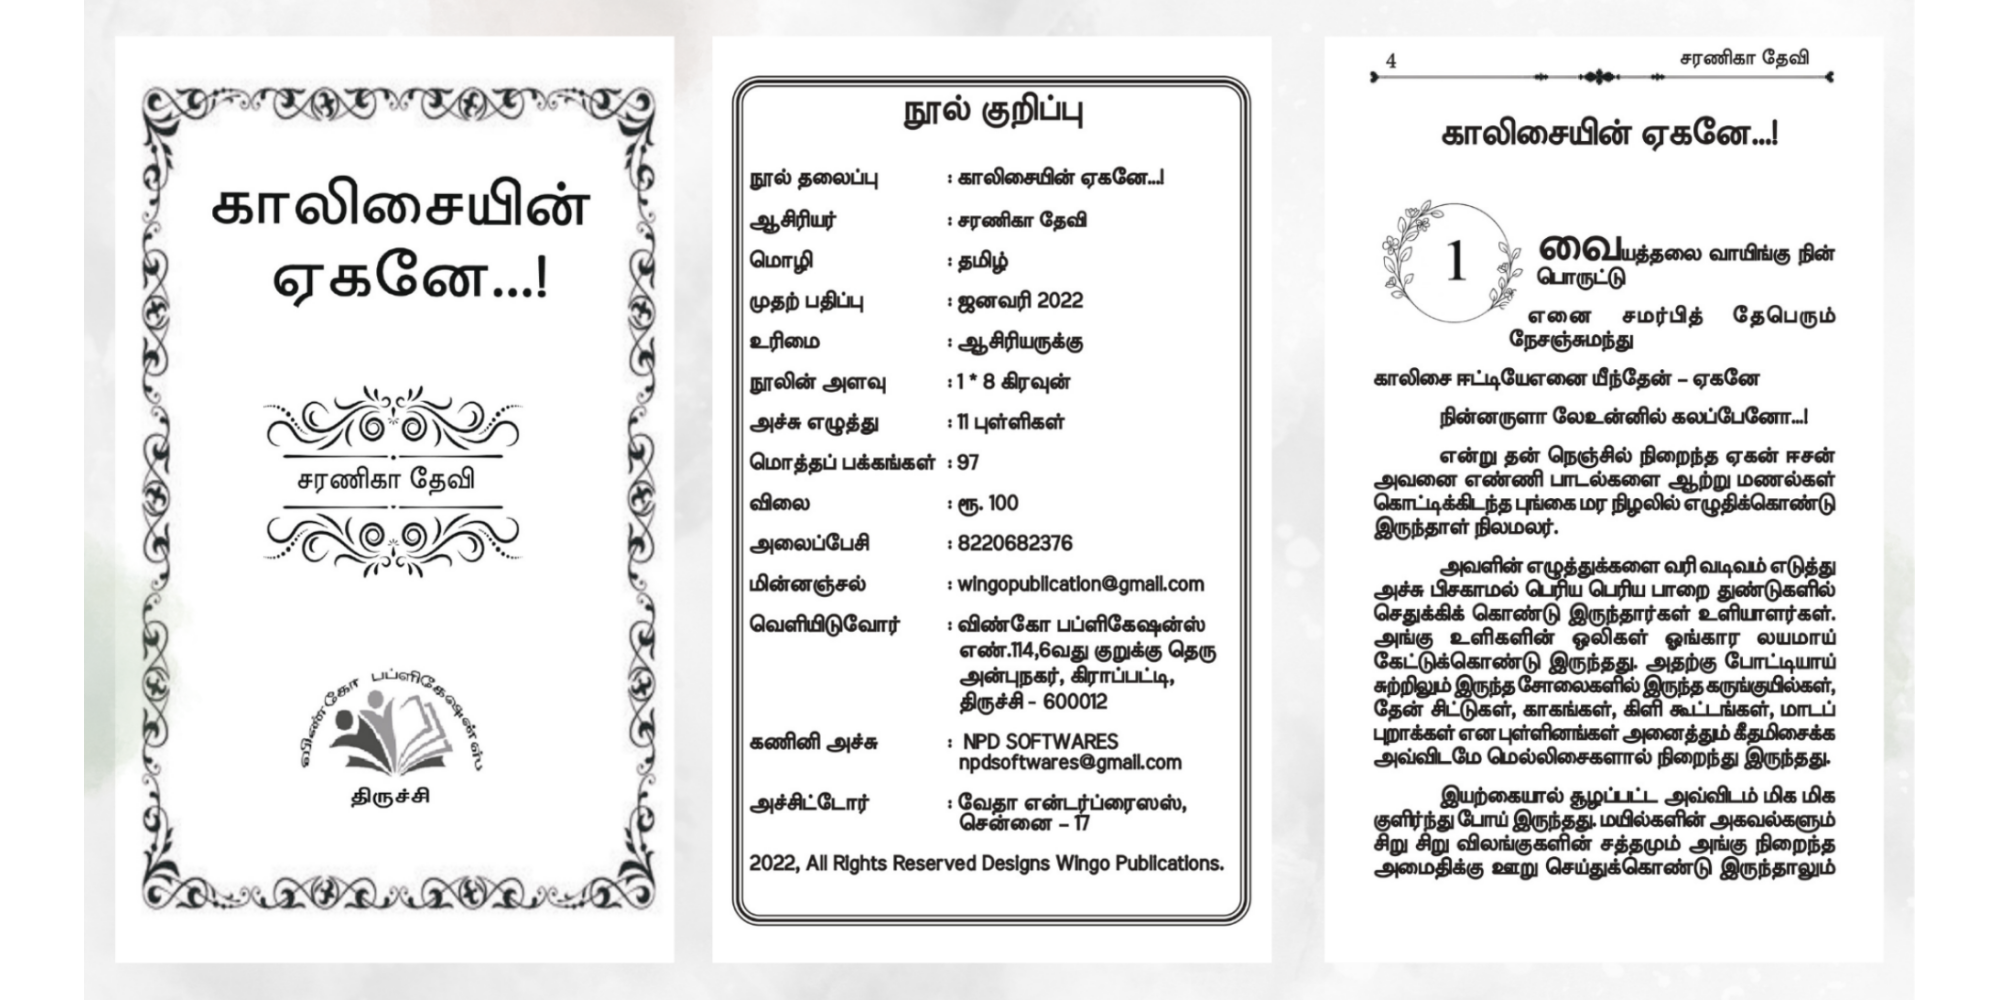 காலிசையின்
ஏகனே...!
சரணிகா தேவி
விண்கோ பப்ளிகேஷன்ஸ்
திருச்சி
நூல் குறிப்பு
நூல் தலைப்பு : காலிசையின் ஏகனே...!
ஆசிரியர் : சரணிகா தேவி
மொழி : தமிழ்
முதற் பதிப்பு : ஜனவரி 2022
உரிமை : ஆசிரியருக்கு
நூலின் அளவு : 1 * 8 கிரவுன்
அச்சு எழுத்து : 11 புள்ளிகள்
மொத்தப் பக்கங்கள் : 97
விலை : ரூ. 100
அலைப்பேசி : 8220682376
மின்னஞ்சல் : wingopublication@gmail.com
வெளியிடுவோர் : விண்கோ பப்ளிகேஷன்ஸ்
எண்.114,6வது குறுக்கு தெரு
அன்புநகர், கிராப்பட்டி,
திருச்சி - 600012
கணினி அச்சு : NPD SOFTWARES
npdsoftwares@gmail.com
அச்சிட்டோர் : வேதா என்டர்ப்ரைஸஸ்,
சென்னை – 17
2022, All Rights Reserved Designs Wingo Publications.
4 சரணிகா தேவி
காலிசையின் ஏகனே...!
1
வையத்தலை வாயிங்கு நின்
பொருட்டு
எனை சமர்பித் தேபெரும்
நேசஞ்சுமந்து
காலிசை ஈட்டியேஎனை யீந்தேன் – ஏகனே
நின்னருளா லேஉன்னில் கலப்பேனோ...!
என்று தன் நெஞ்சில் நிறைந்த ஏகன் ஈசன்
அவனை எண்ணி பாடல்களை ஆற்று மணல்கள்
கொட்டிக்கிடந்த புங்கை மர நிழலில் எழுதிக்கொண்டு
இருந்தாள் நிலமலர்.
அவளின் எழுத்துக்களை வரி வடிவம் எடுத்து
அச்சு பிசகாமல் பெரிய பெரிய பாறை துண்டுகளில்
செதுக்கிக் கொண்டு இருந்தார்கள் உளியாளர்கள்.
அங்கு உளிகளின் ஒலிகள் ஓங்கார லயமாய்
கேட்டுக்கொண்டு இருந்தது. அதற்கு போட்டியாய்
சுற்றிலும் இருந்த சோலைகளில் இருந்த கருங்குயில்கள்,
தேன் சிட்டுகள், காகங்கள், கிளி கூட்டங்கள், மாடப்
புறாக்கள் என புள்ளினங்கள் அனைத்தும் கீதமிசைக்க
அவ்விடமே மெல்லிசைகளால் நிறைந்து இருந்தது.
இயற்கையால் சூழப்பட்ட அவ்விடம் மிக மிக
குளிர்ந்து போய் இருந்தது. மயில்களின் அகவல்களும்
சிறு சிறு விலங்குகளின் சத்தமும் அங்கு நிறைந்த
அமைதிக்கு ஊறு செய்துக்கொண்டு இருந்தாலும்